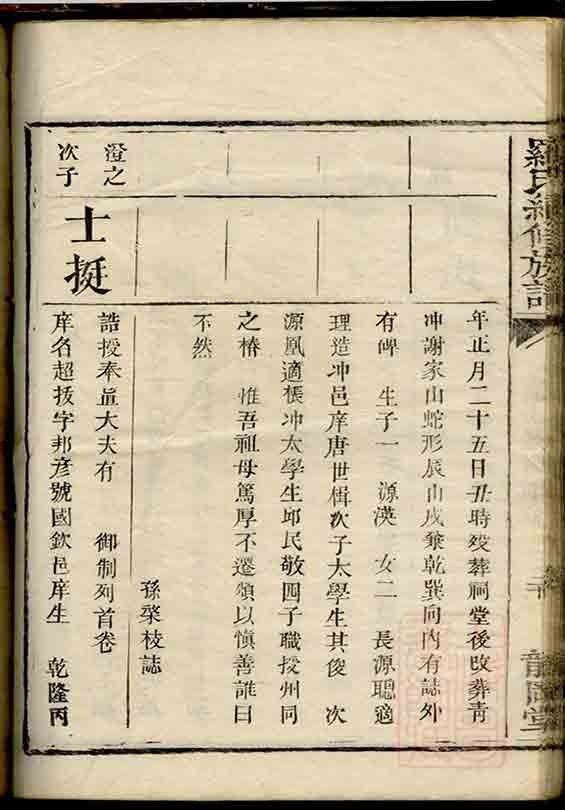 羅氏續修族譜
龍門堂
年正月二十五日丑時歿葬祠堂後改葬青
冲謝家山蛇形辰山戌兼乾巽向內有誌外
有碑 生子一 源渶 女二 長源聰適
理造冲邑庠唐世楫次子太學生其俊 次
源凰適楼冲太學生邱民敬四子職授州同
之椿 惟吾祖母篤厚不遷頌以慎善誰曰
不然
孫榮枝誌
澄之
次子
士挺
誥授奉直大夫有 御制列首卷
庠名超拔字邦彥號國欽邑庠生 乾隆丙